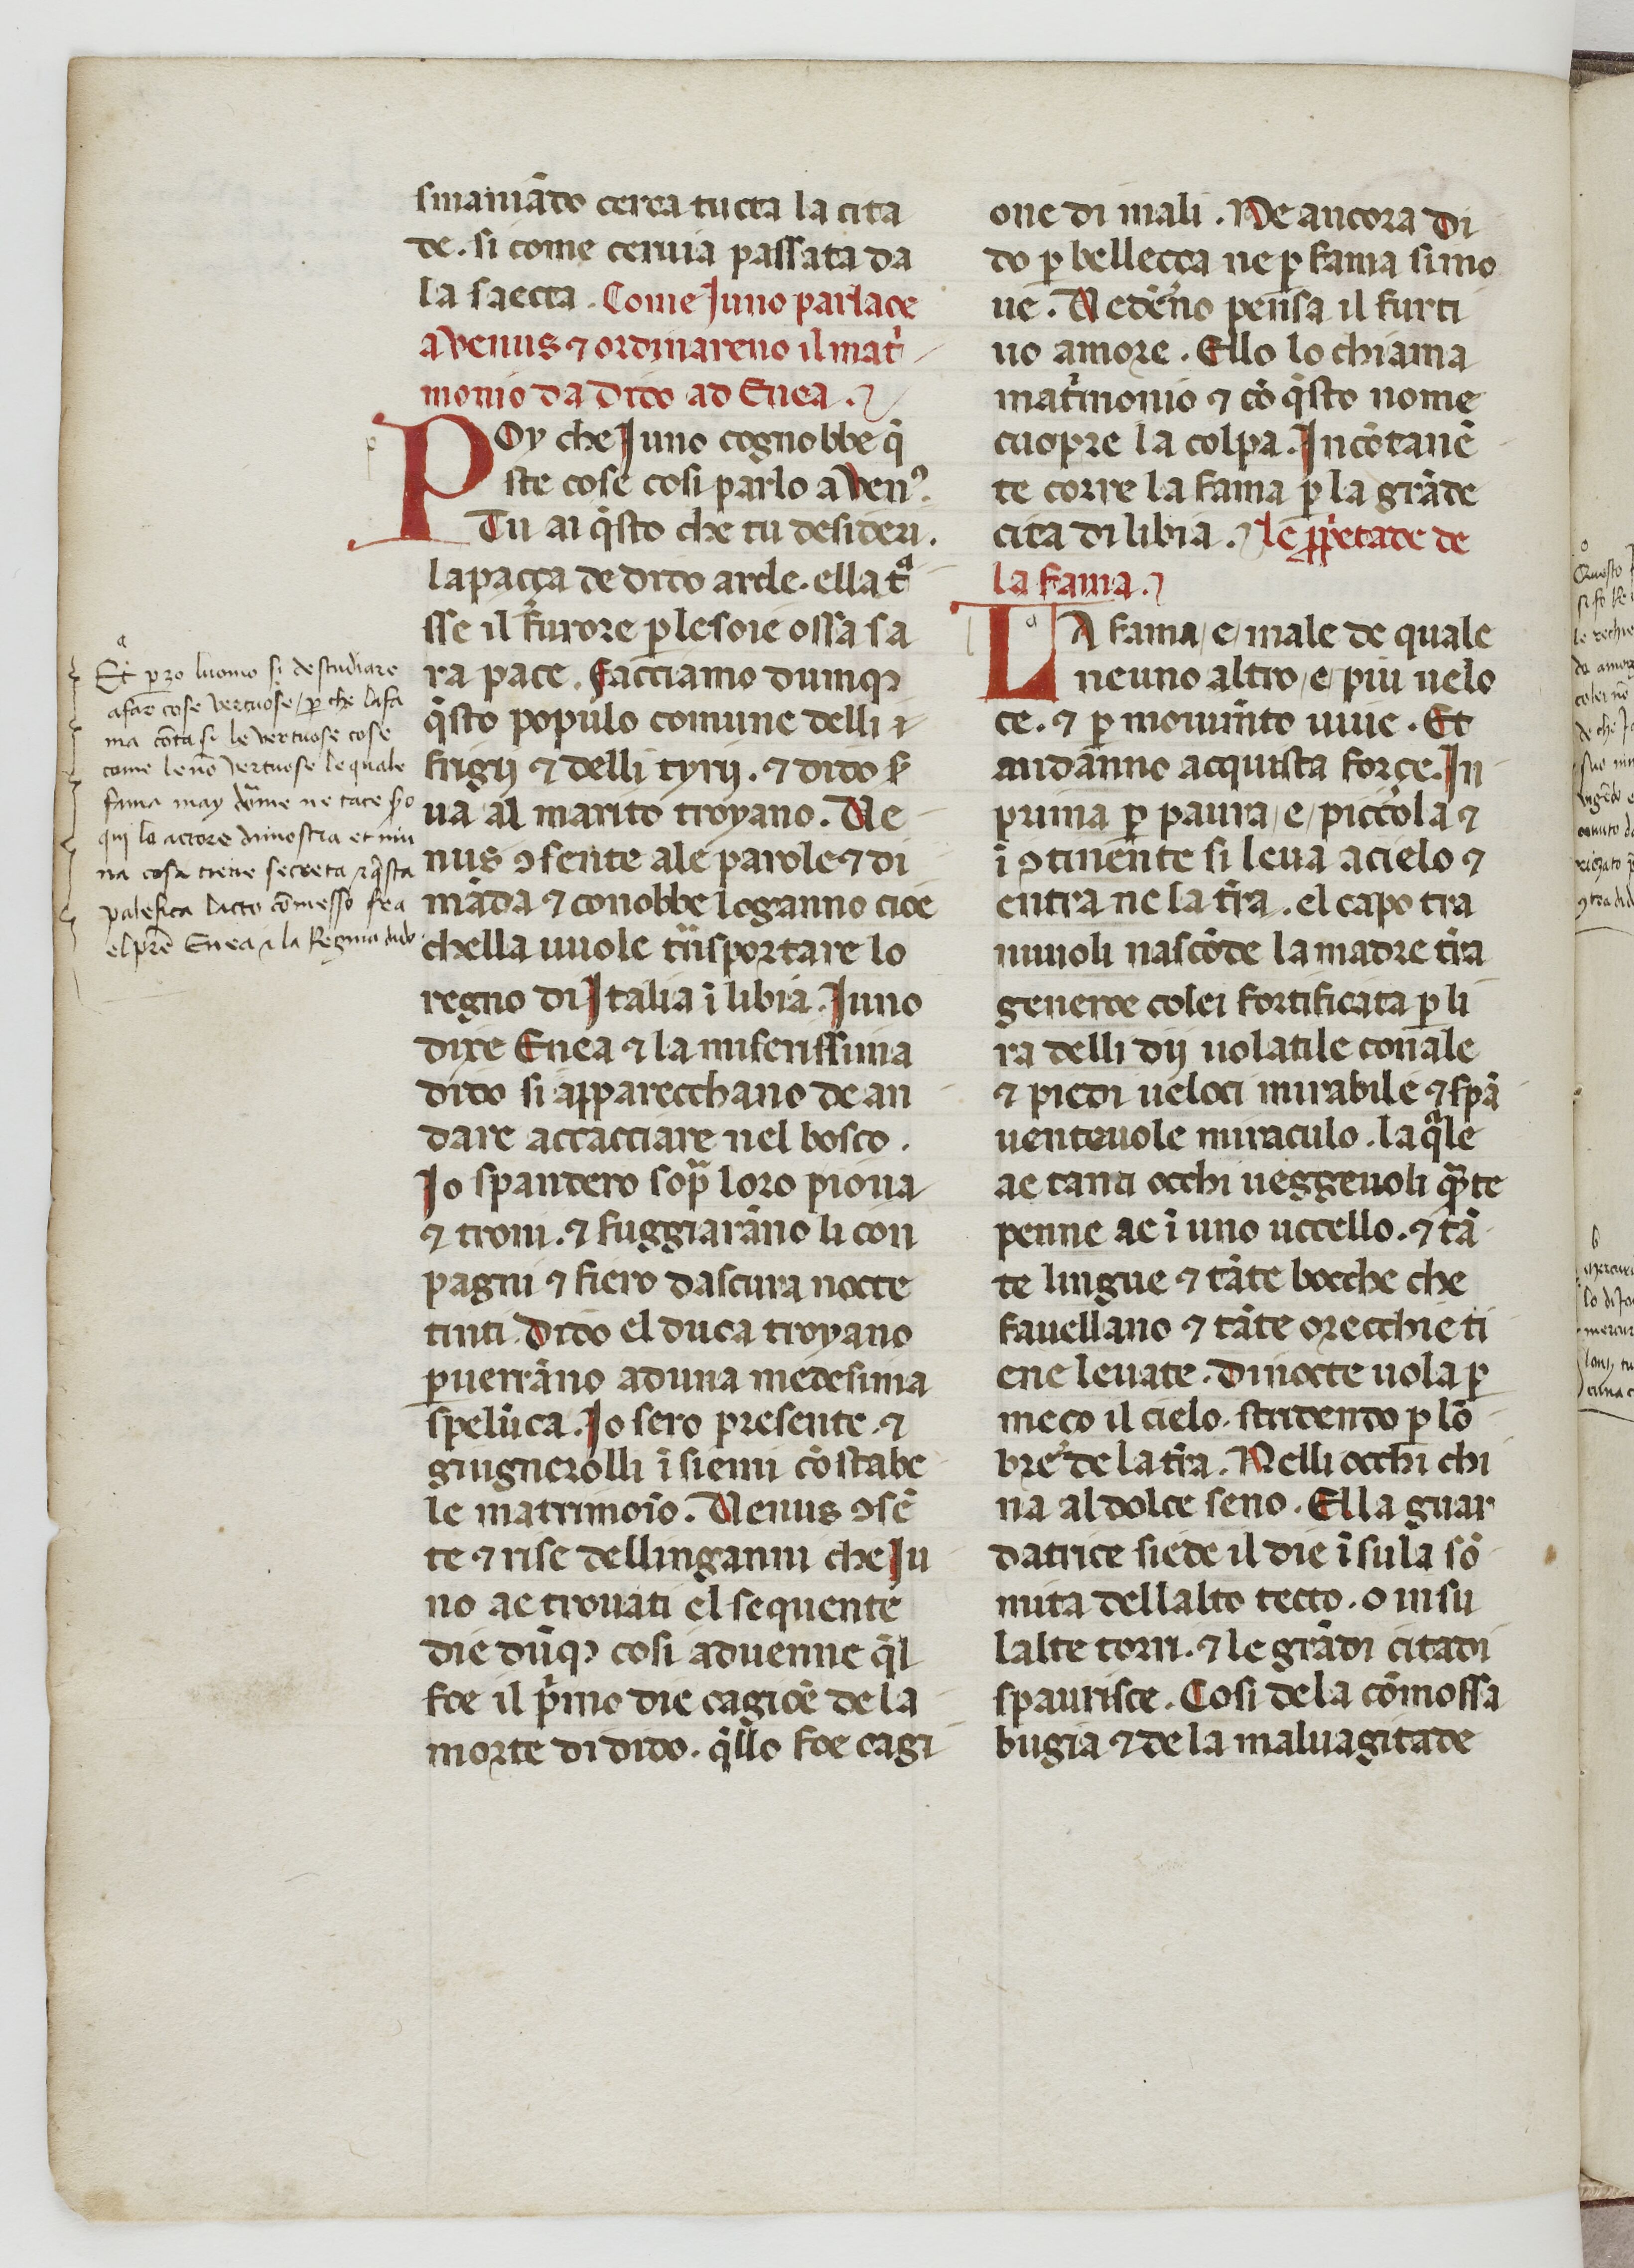 smaniādo cerca tucta la cita
de. si come ceruia passata da
la saecta. Come Juno parlaoe
a Venus ⁊ ordinareno il mat͛i
monio da Dido ad Enea.
POy che Juno cognobbe q̄
ste cose cosi parlo a Venꝰ.
Tu ai q̄sto che tu desideri.
la pacça de dido arde. ella tͣ
sse il furore ꝑ le soie ossa sa
ra pace. facciamo dunqꝫ
q̄sto populo comune delli i
frigij ⁊ delli tyrij. ⁊ dido s͛
ua al marito troyano. Ve
nus ꝯsente ale parole ⁊ di
māda ⁊ conobbe loganno cioe
chella uuole t͞nsportare lo
regno di Italia ī libia. Juno
dixe Enea ⁊ la miserissima
dido si apparecchano de an
dare accacciare nel bosco.
Jo spandero sopͣ loro pioua
⁊ troni. ⁊ fuggiarāno li con
pagni ⁊ fiero dascura nocte
tinti. Dido el duca troyano
ꝑuerrāno aduna medesima
spelūca. Jo sero presente. ⁊
giugnerolli īsiemi cōstabe
le matrimoīo. Venus ꝯsē
te ⁊ rise dellinganni che Ju
no ae trouati el sequente
die dūqꝫ cosi aduenne q̄l
foe il p͛mo die cagiōe de la
morte di dido. q̄llo foe cagi
one di mali. Ne ancora Di
do ꝑ bellecça ne ꝑ fama si mo
ue. Ne den͛o pensa il furti
uo amore. Ello lo chiama
mat͛imonio ⁊ cō q̄sto nome
cuopre la colpa. Incōtanē
te corre la fama ꝑ la grāde
cita di libia. le ꝓp͛etade de
la fama.
LA fama /e/ male de quale
neuno altro /e/ piu uelo
ce. ⁊ ꝑ mouim̄to uiue. Et
andanno acquista forçe. In
prima ꝑ paura /e/ piccola ⁊
ī ꝯtinente si leua a cielo ⁊
entra ne la t͛ra. el capo tra
nuuoli nascōde la madre t͛ra
generoe colei fortificata ꝑ li
ra delli dij uolatile con ale
⁊ piedi ueloci mirabile ⁊ spā
uenteuole miraculo. la qͣle
ae tanti occhi ueggeuoli qͣte
penne ae ī uno uccello. ⁊ tā
te lingue ⁊ tāte bocche che
fauellano ⁊ tāte orecchie ti
ene leuate. Di nocte uola ꝑ
meço il cielo. stridendo ꝑ lō
bre de la t͛ra. Nelli occhi chi
na al dolce seno. Ella guar
datrice siede il die ī sula sō
mita dellalto tecto. o in su
lalte torri. ⁊ le grādi citadi
spaurisce. Cosi de la cōmossa
bugia ⁊ de la maluagitade
a
Et ꝑzo luomo si de studiare
afar cose vertuose / ꝑche la fa
ma cōta si le vertuose cose
come le nō vertuose le quale
fama may dorme ne tace
qui lo actore dimostra et niu
na cosa tiene secreta ⁊ q̄sta
palesica lacto cōmesso fra
el prē Enea ⁊ la Regina dido